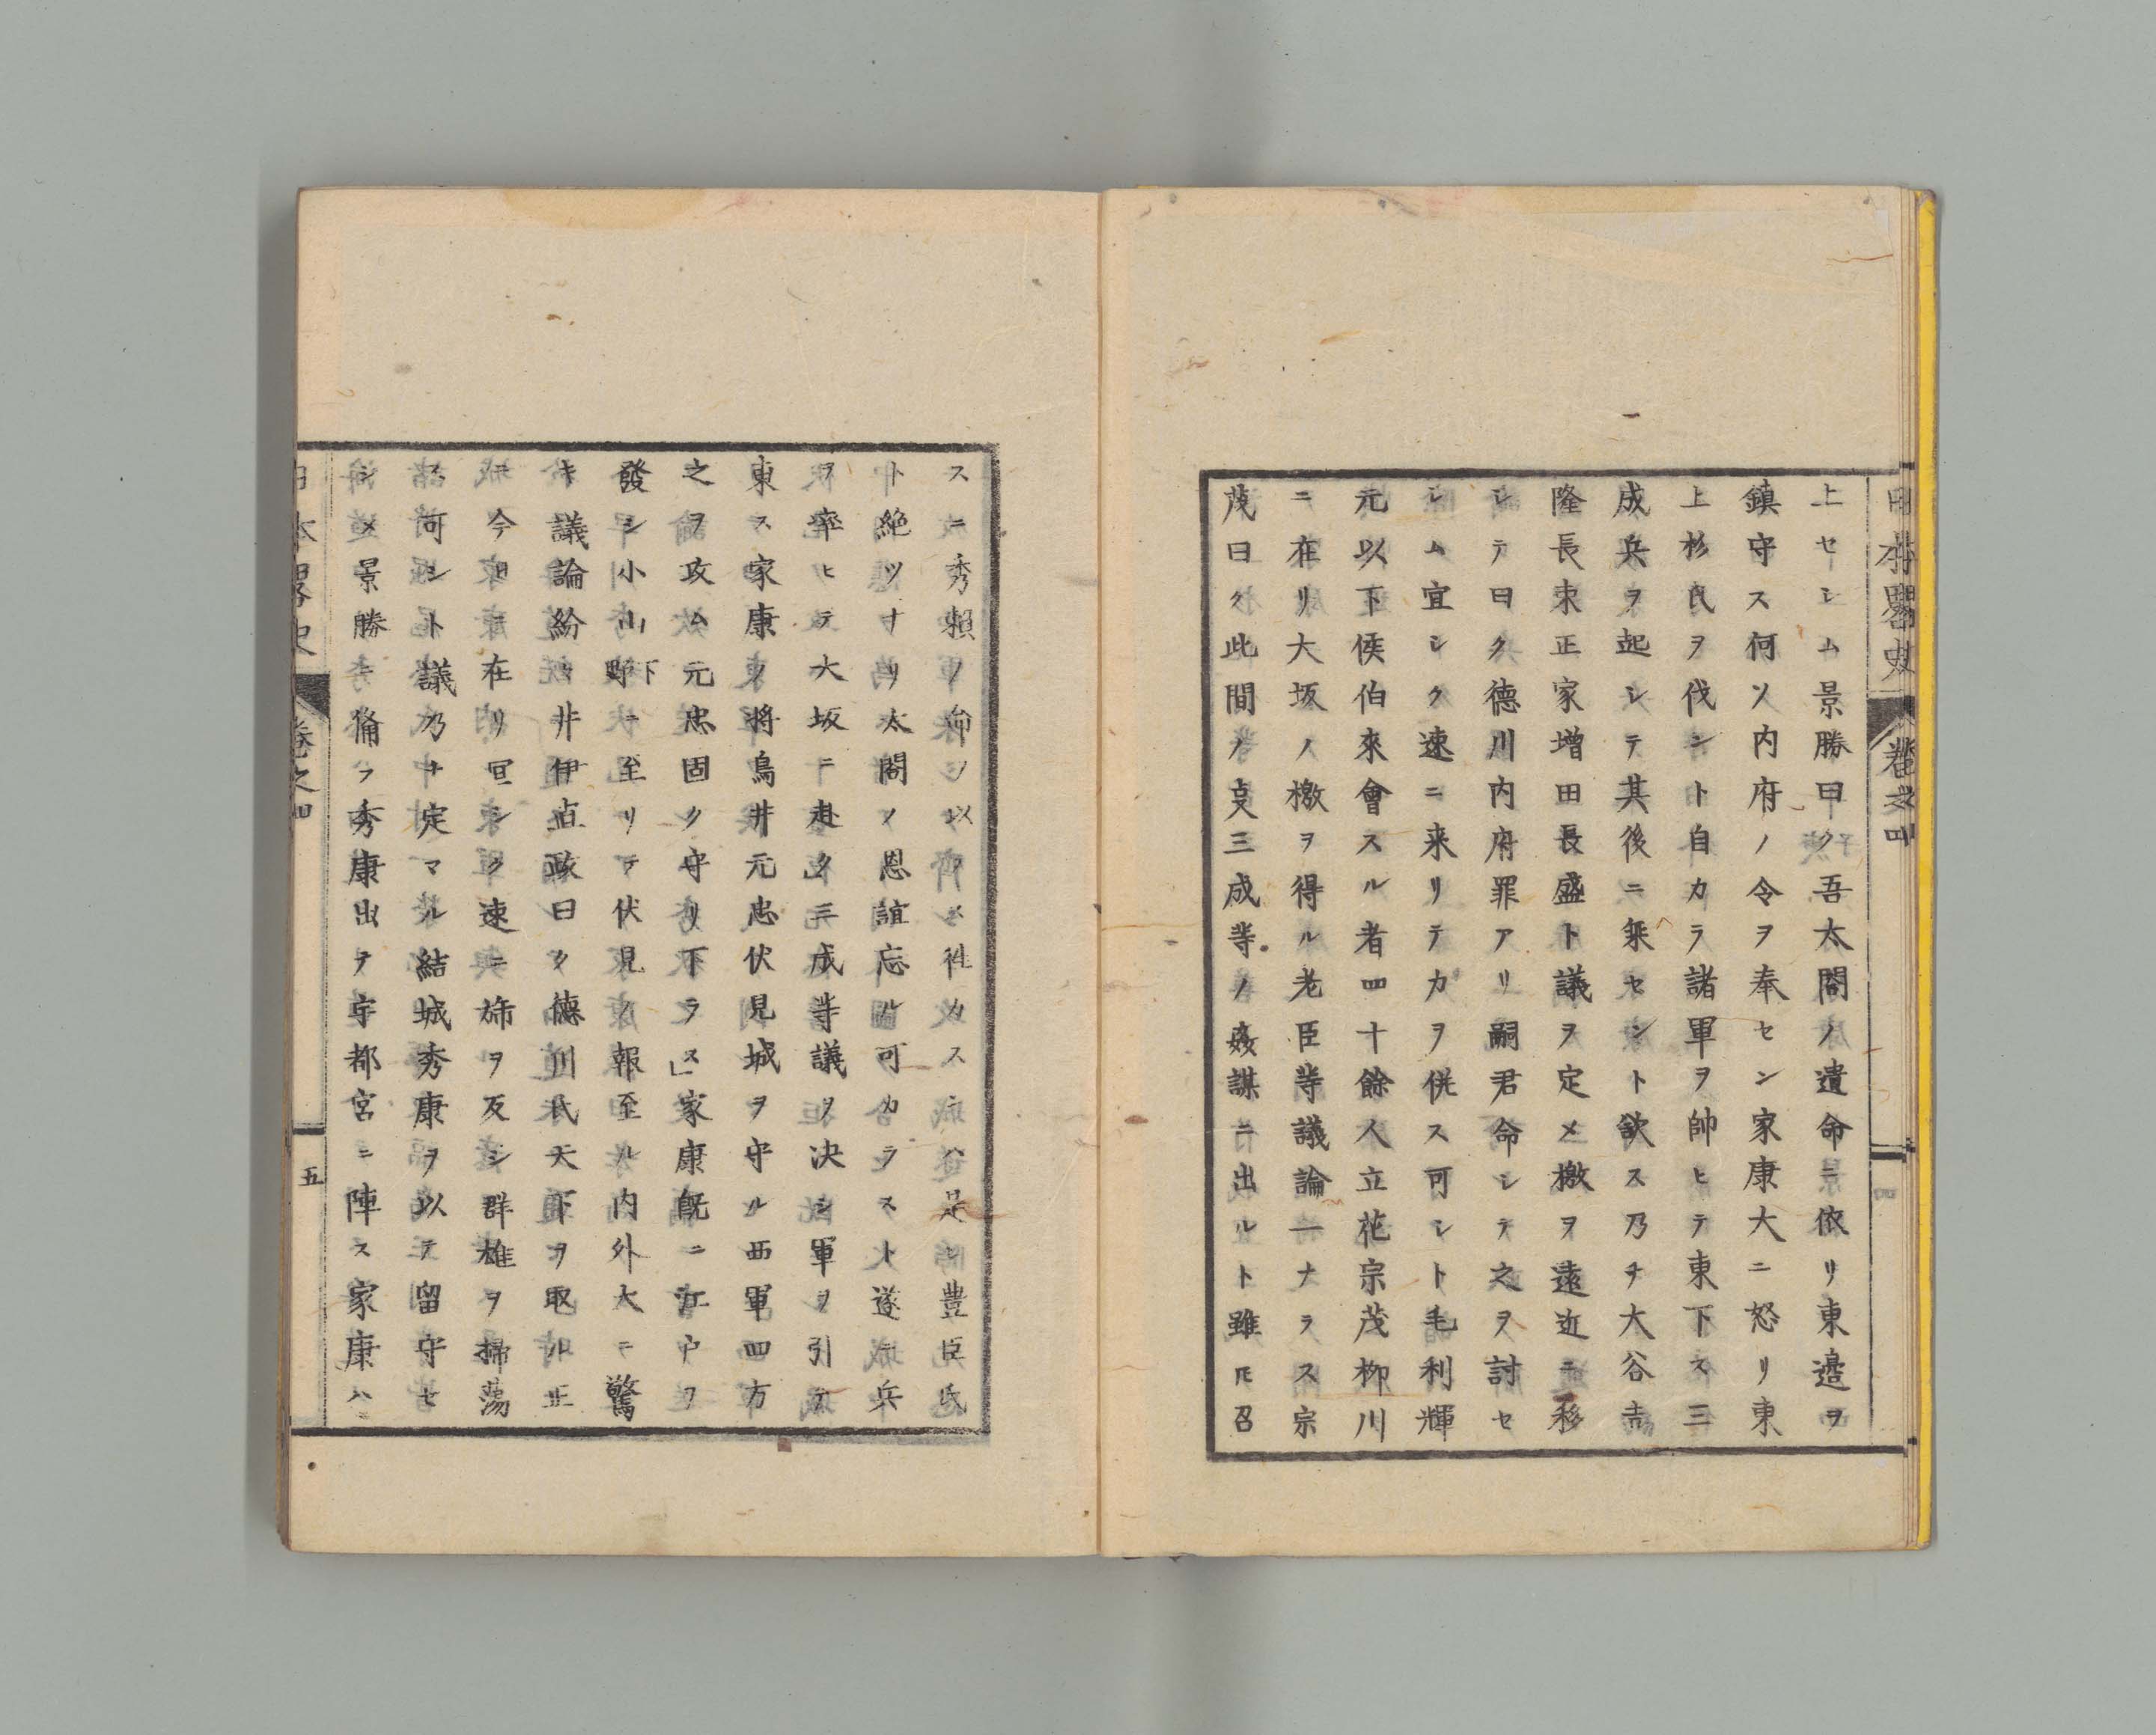 日本畧史 卷之四
上セシム景勝曰ク吾太閤ノ遺命ニ依リ東邉ヲ
鎮守ス何ソ内府ノ令ヲ奉セン家康大ニ怒リ東
上杉氏ヲ伐ント自カラ諸軍ヲ帥ヒテ東下ス三
成兵ヲ起シテ其後ニ乗セント欲ス乃チ大谷吉
隆長束正家増田長盛ト議ヲ定メ檄ヲ遠近ニ移
シテ曰ク德川内府罪アリ嗣君命シテ之ヲ討セ
シム宜シク速ニ来リテ力ヲ併ス可シト毛利輝
元以下侯伯來會スル者四十餘人立花宗茂栁川
ニ在リ大坂ノ檄ヲ得ル老臣等議論一ナラス宗
茂曰ク此間ノ叓三成等ノ姦謀ニ出ルト雖𪜈召
スニ秀賴ノ命ヲ以
テス徃カスンハ是レ豊臣氏
ト絶ツナリ太閤ノ恩誼忘ル可カラスト遂ニ兵
ヲ率ヒテ大坂ニ赴ク三成等議ヲ決シ軍ヲ引テ
東ス家康ノ将鳥井元忠伏見城ヲ守ル西軍四方
之ヲ攻ム元忠固ク守リ下ラス」家康旣ニ江戸ヲ
發シ小山下野ニ至リテ伏見ノ報至ル内外大ニ驚
キ議論紛々井伊直政曰ク德川氏天下ヲ取ル正
ニ今日ニ在リ宜シク速ニ斾ヲ反シ群雄ヲ掃蕩
ス可シト議乃チ定マル結城秀康ヲ以テ留守セ
シメ景勝ニ備フ秀康出テ宇都宮ニ陣ス家康ハ
日本畧史 卷之四 五